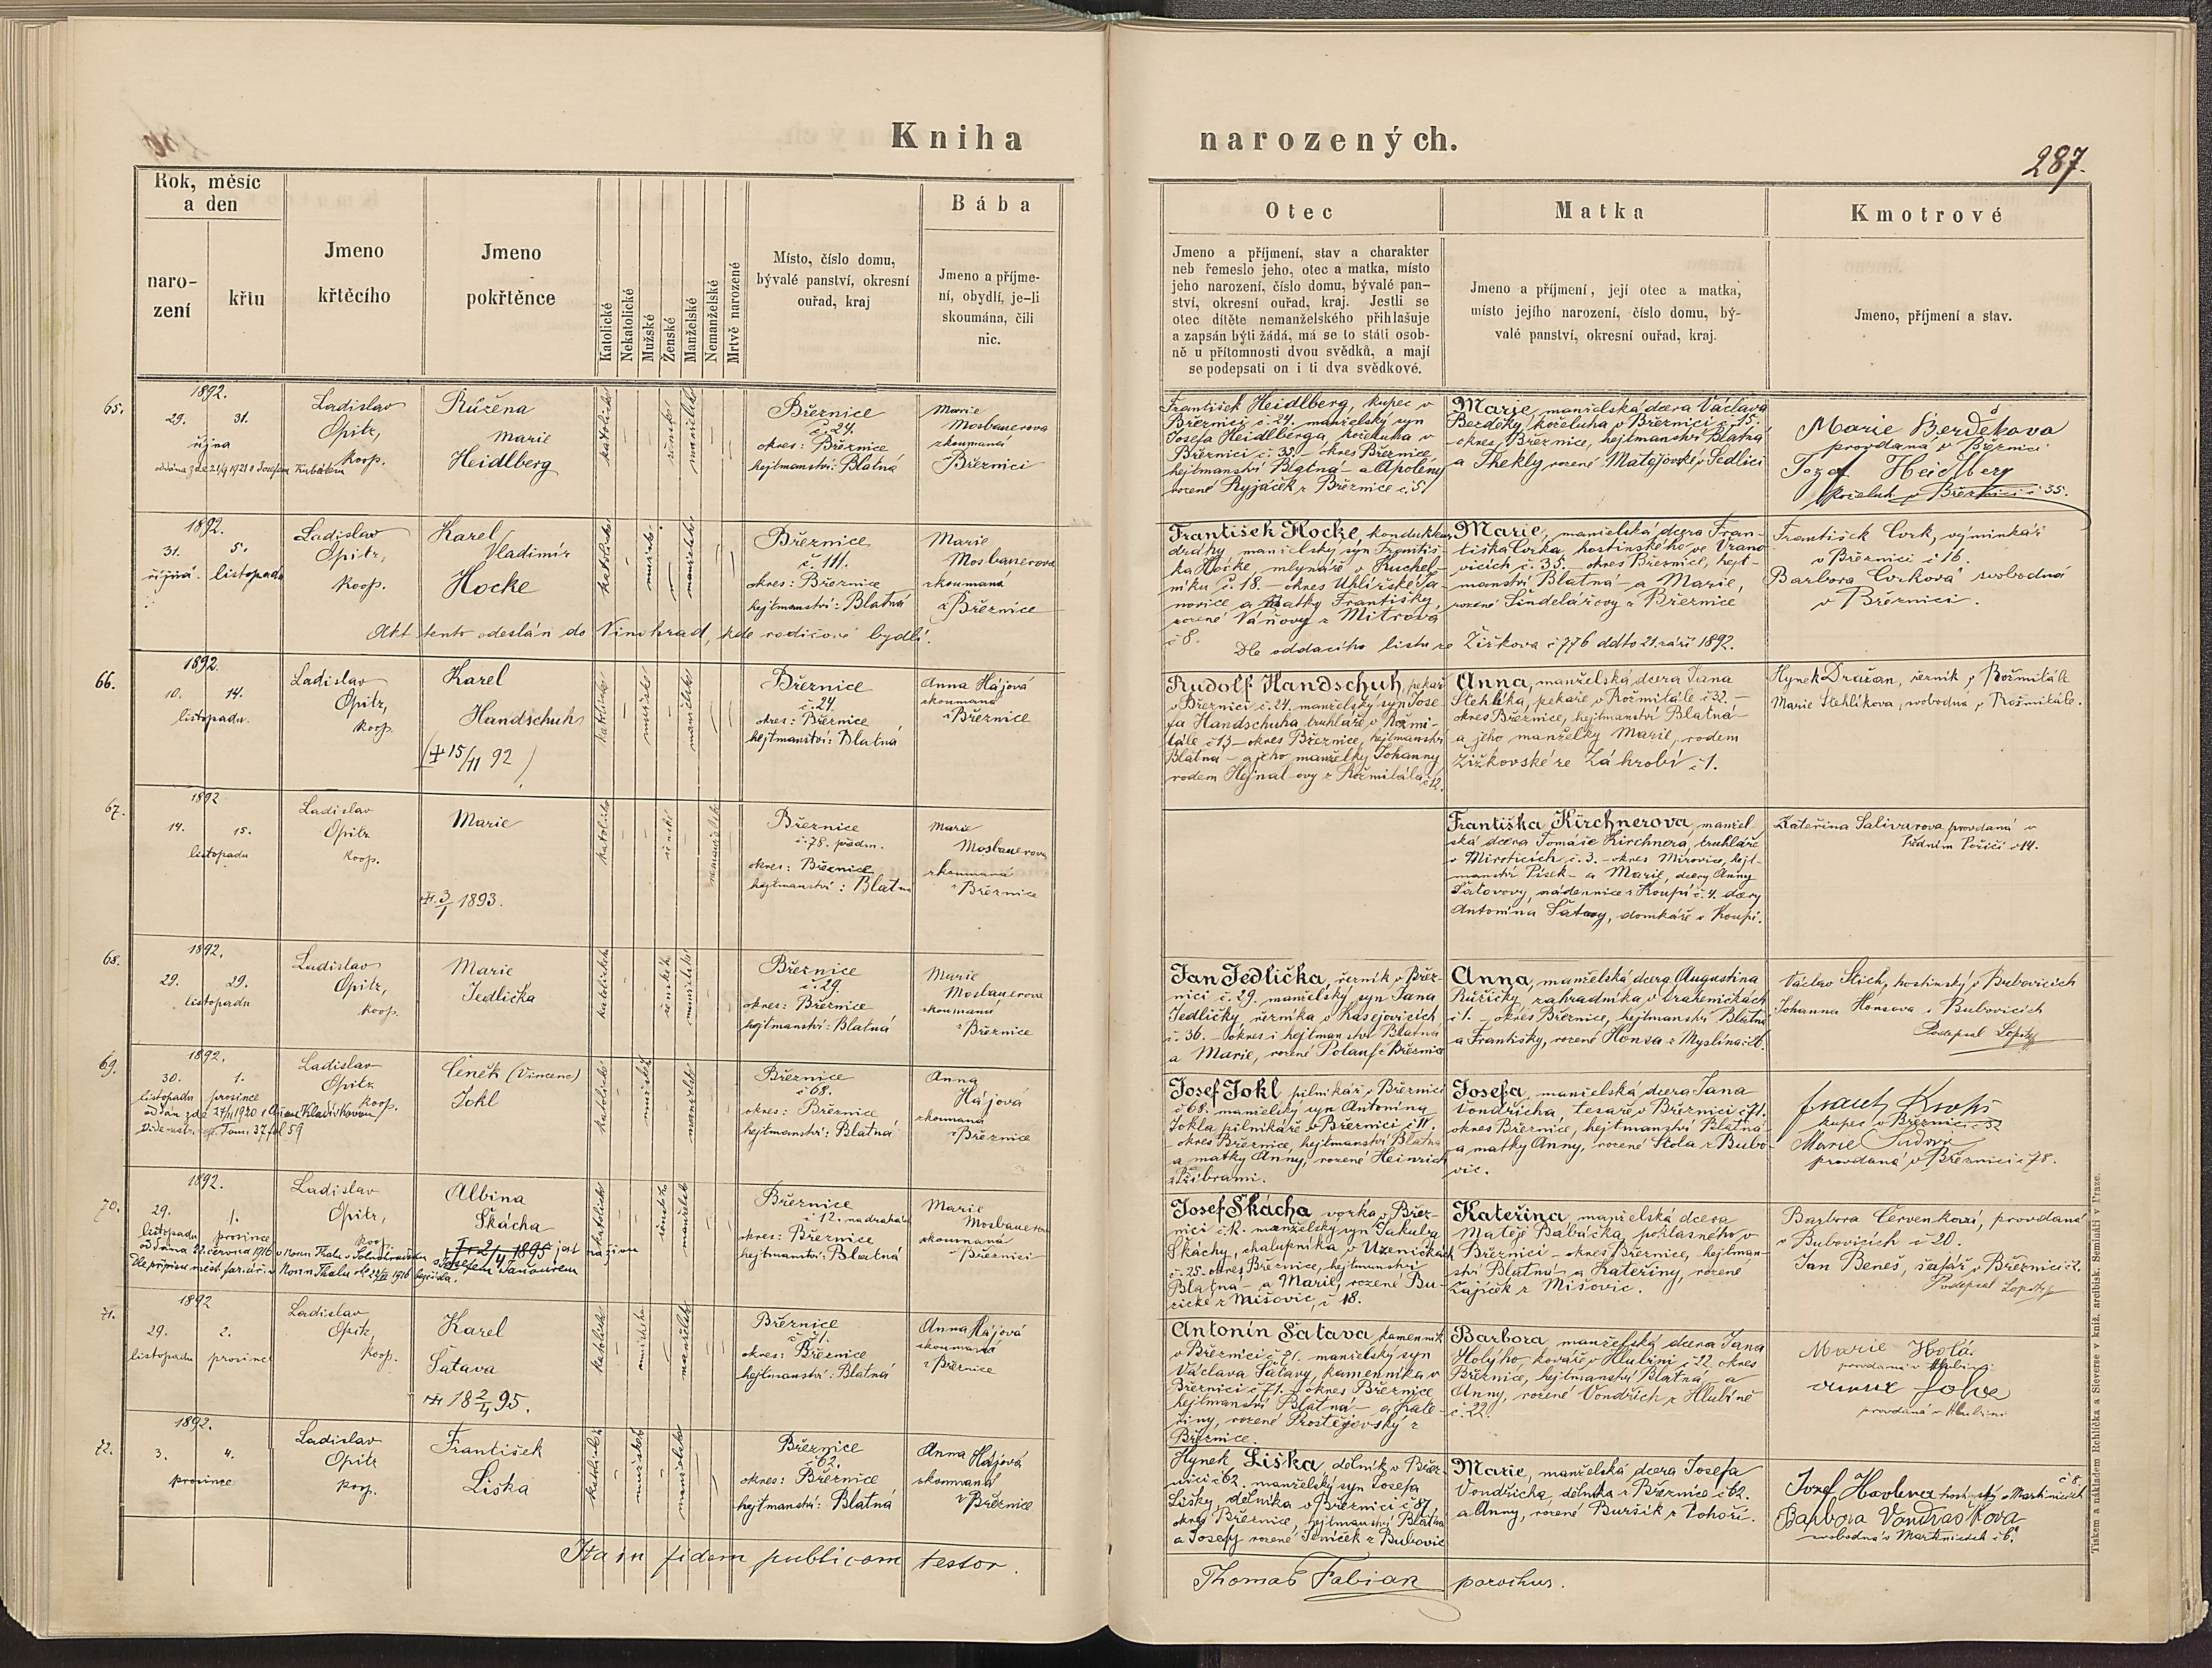 Kniha narozených.
287.
Rok, měsíc
a den
naro-
zení
křtu
Jmeno
křtěcího
Jmeno
pokřtěnce
Katolické
Nekatolické
Mužské
Ženské
Manželské
Nemanželské
Mrtvě narozené
Místo, číslo domu,
bývalé panství, okresní
ouřad, kraj
Bába
Jmeno a příjme-
ní, obydlí, je-li
skoumána, čili
nic.
Otec
Jmeno a příjmení, stav a charakter
neb řemeslo jeho, otec a matka, místo
jeho narození, číslo domu, bývalé pan-
ství, okresní ouřad, kraj. Jestli se
otec dítěte nemanželského přihlašuje
a zapsán býti žádá, má se to státi osob-
ně u přítomnosti dvou svědků, a mají
se podepsati on i ti dva svědkové.
Matka
Jmeno a příjmení, její otec a matka,
místo jejího narození, číslo domu, bý-
valé panství, okresní ouřad, kraj.
Kmotrové
Jmeno, příjmení a stav.
65.
1892.
29. 31.
října
Ladislav
Opitz,
koop.
Růžena
Marie
Heidlberg
katolické
ženské
manželské
Březnice
č. 24.
okres: Březnice
hejtmanství: Blatná
Marie
Mosbauerova
zkoumaná
Březnici
František Heidlberg, kupec v
Březnici č. 24. manželský syn
Josefa Heidlberga, koželuha v
Březnici č. 35. okres Březnice,
hejtmanství Blatná - a Apoleny
rozené Ryjáček z Březnice č. 5.
Marie, manželská dcera Václava
Berděky, koželuha v Březnici č. 15.
okres Březnice, hejtmanství Blatná
a Thekly rozené Matějovské v Sedlici
Marie Berděkova
provdaná v Březnici
Josef Heidlberg
koželuh v Březnici č 35.
1892.
31. 5.
října. listopadu
Ladislav
Opitz,
koop.
Karel
Vladimír
Hocke
katolické
mužské
manželské
Březnice
č. 111.
okres: Březnice
hejtmanství: Blatná
Marie
Mosbauerova
zkoumaná
z Březnice
František Hocke, konduktér
dráhy manželský syn Františ-
ka Hocke, mlynáře v Kuchel-
níku č. 18. - okres Uhlířské Ja-
novice a matky Františky,
rozené Váňovy z Mitrova
č 8.
Marie, manželská dcera Fran-
tiška Cvrka, hostinského ve Vrano-
vicích č. 35. - okres Březnice, hejt-
manství Blatná - a Marie,
rozené Šindelářovy z Březnice
František Cvrk, výminkář
v Březnici č 16.
Barbora Cvrková svobodná
v Březnici.
Akt tento odeslán do Vinohrad, kde rodičové bydlí.
Dle oddacího listu ze Žižkova č 776 ddto 21. září 1892.
66.
1892.
10. 14.
listopadu.
Ladislav
Opitz,
koop.
Karel
Handschuh
(† 15/11 92)
katolické
mužské
manželské
Březnice
č. 24.
okres: Březnice
hejtmanství: Blatná
Anna Hájová
zkoumaná
z Březnice
Rudolf Handschuh, pekař
v Březnici č. 24. manželský syn Jose-
fa Handschuha truhláře v Rožmi-
tále č 13 - okres Březnice, hejtmanství
Blatná - a jeho manželky Johanny
rodem Hejnal-ovy z Rožmitála č 12.
Anna, manželská dcera Jana
Stehlíka, pekaře v Rožmitále č 32. -
okres Březnice, hejtmanství Blatná -
a jeho manželky Marie, rodem
Žižkovské ze Záhrobí č 1.
Hynek Dražan, řezník z Rožmitále
Marie Stehlíkova, svobodná z Rožmitále.
67.
1892
14. 15.
listopadu
Ladislav
Opitz
koop.
Marie
†† 3/1 1893.
katolické
ženské
nemanželské
Březnice
č. 78. předm.
okres: Březnice
hejtmanství: Blatná
Marie
Mosbauerova
zkoumaná
z Březnice
Františka Kirchnerova, manžel-
ská dcera Tomáše Kirchnera, truhláře
v Miroticích č. 3. - okres Mirovice, hejt-
manství Písek - a Marie, dcery Anny
Šatovovy, nádennice z Koupí č. 4. dcery
Antonína Šatavy, domkáře v Koupí.
Kateřina Salivarova provdaná v
Předním Poříčí č 14.
68.
1892.
29. 29.
listopadu
Ladislav
Opitz,
koop.
Marie
Jedlička
ženské
manželské
Březnice
č. 29.
okres: Březnice
hejtmanství: Blatná
Marie
Mosbauerova
zkoumaná
z Březnice
Jan Jedlička, řezník v Břez-
nici č. 29. manželský syn Jana
Jedličky řezníka v Kasejovicích
č. 36. - okres i hejtmanství Blatná
a Marie, rozené Polanf z Březnice
Anna, manželská dcera Augustina
Růžičky zahradníka v Draheničkách
č 1. - okres Březnice, hejtmanství Blatná
a Františky, rozené Honsa z Myslína
Václav Stich, hostinský v Bubovicích
Johanna Honsova z Bubovicích
Podepsal Lopitz
69.
1892.
30. 1.
listopadu prosince
oddán zde 27/11 1920
Tom. 37 fol 59
Ladislav
Opitz
koop.
Čeněk (Vincenc)
Jokl
katolické
mužské
manželské
Březnice
č 68.
okres: Březnice
hejtmanství: Blatná
Anna
Hájová
zkoumaná
z Březnice
Josef Jokl pilníkář v Březnici
č 68. manželský syn Antonína
Jokla pilníkáře v Březnici č 11.
- okres Březnice, hejtmanství Blatná
a matky Anny, rozené Heinrich
z Příbrami.
Josefa, manželská dcera Jana
Vondřicha, tesaře v Březnici č 71.
okres Březnice, hejtmanství Blatná
a matky Anny, rozené Štola z Bubo-
vic.
kupec v Březnici
Marie
provdaná v Březnici č 78.
70.
1892.
29. 1.
listopadu prosince
Ladislav
Opitz,
koop.
Albina
Škácha
katolické
ženské
manželské
Březnice
č 12. na drahách
okres: Březnice
hejtmanství: Blatná
Marie
Mosbauerova
zkoumaná
Březnici
Josef Škácha vorka v Břez-
nici č. 12. manželský syn Jakuba
Škáchy, chalupníka v Uzeničkách
č. 25. okres Březnice, hejtmanství
Blatná - a Marie, rozené Bu-
zické z Mišovic, č 18.
Kateřina manželská dcera
Matěje Babáčka, pohlasného v
Březnici - okres Březnice, hejtman-
ství Blatná - a Kateřiny, rozené
Zajíček z Mišovic.
Barbora Červenková, provdaná
v Bubovicích č 20.
Jan Beneš, šafář v Březnici č 2.
Podepsal Lopitz
71.
1892
29. 2.
listopadu prosince
Ladislav
Opitz,
koop.
Karel
Šatava
†† 18 2/4 95.
katolické
mužské
manželské
Březnice
č 71.
okres: Březnice
hejtmanství: Blatná
Anna Hájová
zkoumaná
z Březnice
Antonín Šatava kamenník
v Březnici č 71. manželský syn
Václava Šatavy, kamenníka v
Březnici č 71. - okres Březnice
hejtmanství Blatná - a Kate-
řiny, rozené Prostějovský z
Březnice.
Barbora manželská dcera Jana
Holýho, kováře v Hlubini č 22. okres
Březnice, hejtmanství Blatná - a
Anny, rozené Vondřich z Hlubině
č. 22.
Marie Holá
provdaná v Hlubini
provdaná v Hlubini
72.
1892.
3. 4.
prosince
Ladislav
Opitz
koop.
František
Liška
katolické
mužské
manželské
Březnice
č 62.
okres: Březnice
hejtmanství: Blatná
Anna Hájová
zkoumaná
v Březnice
Hynek Liška dělník v Břez-
nici č 62. manželský syn Josefa
Lišky, dělníka v Březnici č 87,
okres Březnice, hejtmanství Blatná
a Josefy rozené Jeníček z Bubovic
Marie, manželská dcera Josefa
Vondřicha, dělníka z Březnice č 62.
a Anny, rozené Buršík z Pohoří.
Josef Havlena hostinský v Martinicích č 8
Barbora Vondrášková
svobodná v Martinicích č 6.
Ita in fidem publicam testor.
Thomas Fabian parochus.
Tiskem a nákladem Rohlíčka a Sieverse v kníž. arcibisk. Semináři v Praze.